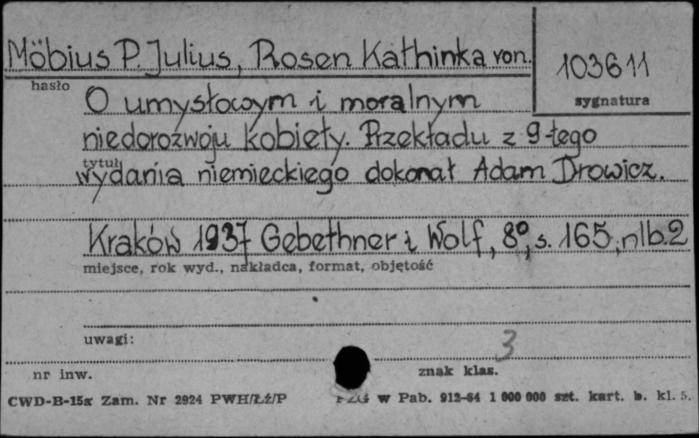 Möbius P. Julius, Rosen Kathinka von.
103611
hasło
sygnatura
O umysłowym i moralnym
niedorozwoju kobiety. Przekładu z 9-tego
tytuł
wydania niemieckiego dokonał Adam Drowicz.
Kraków 1937 Gebethner i Wolf, 8°, s. 165, nlb. 2
miejsce, rok wyd., nakładca, format, objętość
uwagi:
3
nr inw.
znak klas.
CWD-B-15x Zam. Nr 2924 PWH/Łź/P PZG w Pab. 912-64 1 000 000 szt. kart. b. kl. 5.